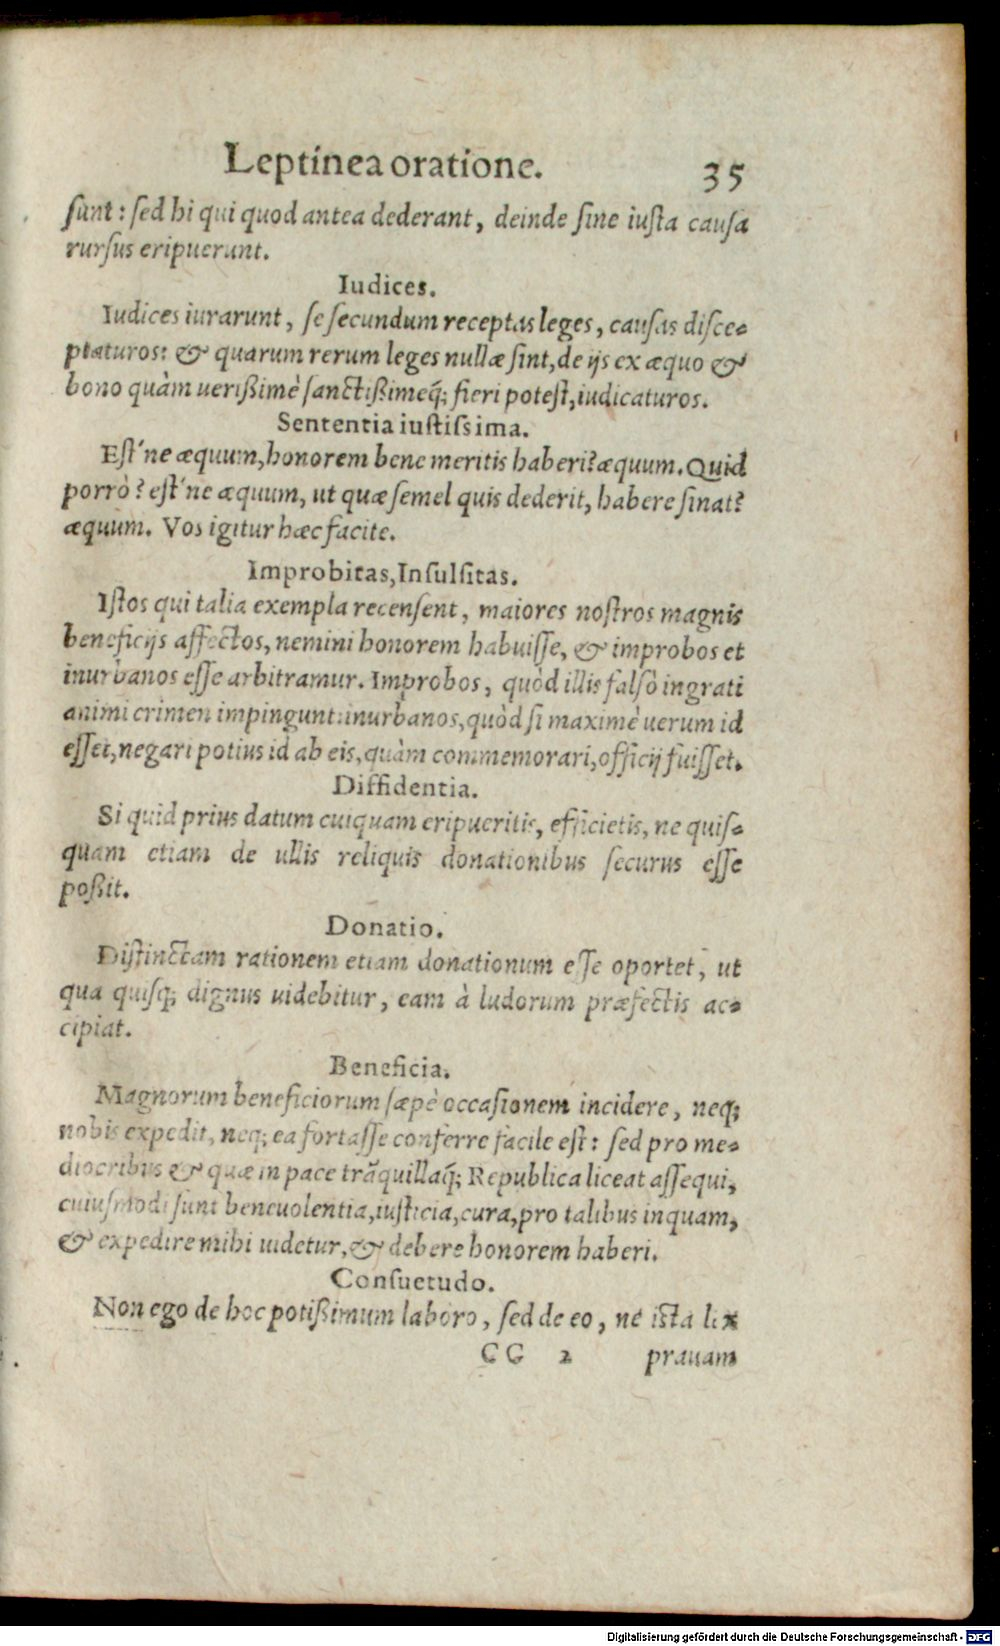 Leptinea oratione. 35
ſunt: ſed hi qui quod antea dederant, deinde ſine iuſta cauſa
rurſus eripuerunt.
Iudices.
Iudices iurarunt, ſe ſecundum receptas leges, cauſas diſce-
ptaturos: & quarum rerum leges nullæ ſint, de ijs ex æquo &
bono quàm uerißimè ſanctißimeq́; fieri poteſt, iudicaturos.
Sententia iuſtiſsima.
Eſt'ne æquum, honorem bene meritis haberi? æquum. Quid
porrò? eſt'ne æquum, ut quæ ſemel quis dederit, habere ſinat?
æquum. Vos igitur hæc facite.
Improbitas, Inſulſitas.
Iſtos qui talia exempla recenſent, maiores noſtros magnis
beneficijs affectos, nemini honorem habuiſſe, & improbos et
inurbanos eſſe arbitramur. Improbos, quòd illis falſò ingrati
animi crimen impingunt: inurbanos, quòd ſi maximè uerum id
eſſet, negari potius id ab eis, quàm commemorari, officij fuiſſet.
Diffidentia.
Si quid prius datum cuiquam eripueritis, efficietis, ne quiſ-
quam etiam de ullis reliquis donationibus ſecurus eſſe
poßit.
Donatio.
Diſtinctam rationem etiam donationum eſſe oportet, ut
qua quiſq; dignus uidebitur, eam à ludorum præfectis ac-
cipiat.
Beneficia.
Magnorum beneficiorum ſæpè occaſionem incidere, neq;
nobis expedit, neq; ea fortaſſe conferre facile eſt: ſed pro me-
diocribus & quæ in pace trãquillaq́; Republica liceat aſſequi,
cuiuſmodi ſunt beneuolentia, iuſticia, cura, pro talibus inquam,
& expedire mihi uidetur, & debere honorem haberi.
Conſuetudo.
Non ego de hoc potißimum laboro, ſed de eo, ne iſta lex
GG 2 prauam
Digitalisierung gefördert durch die Deutsche Forschungsgemeinschaft - DFG